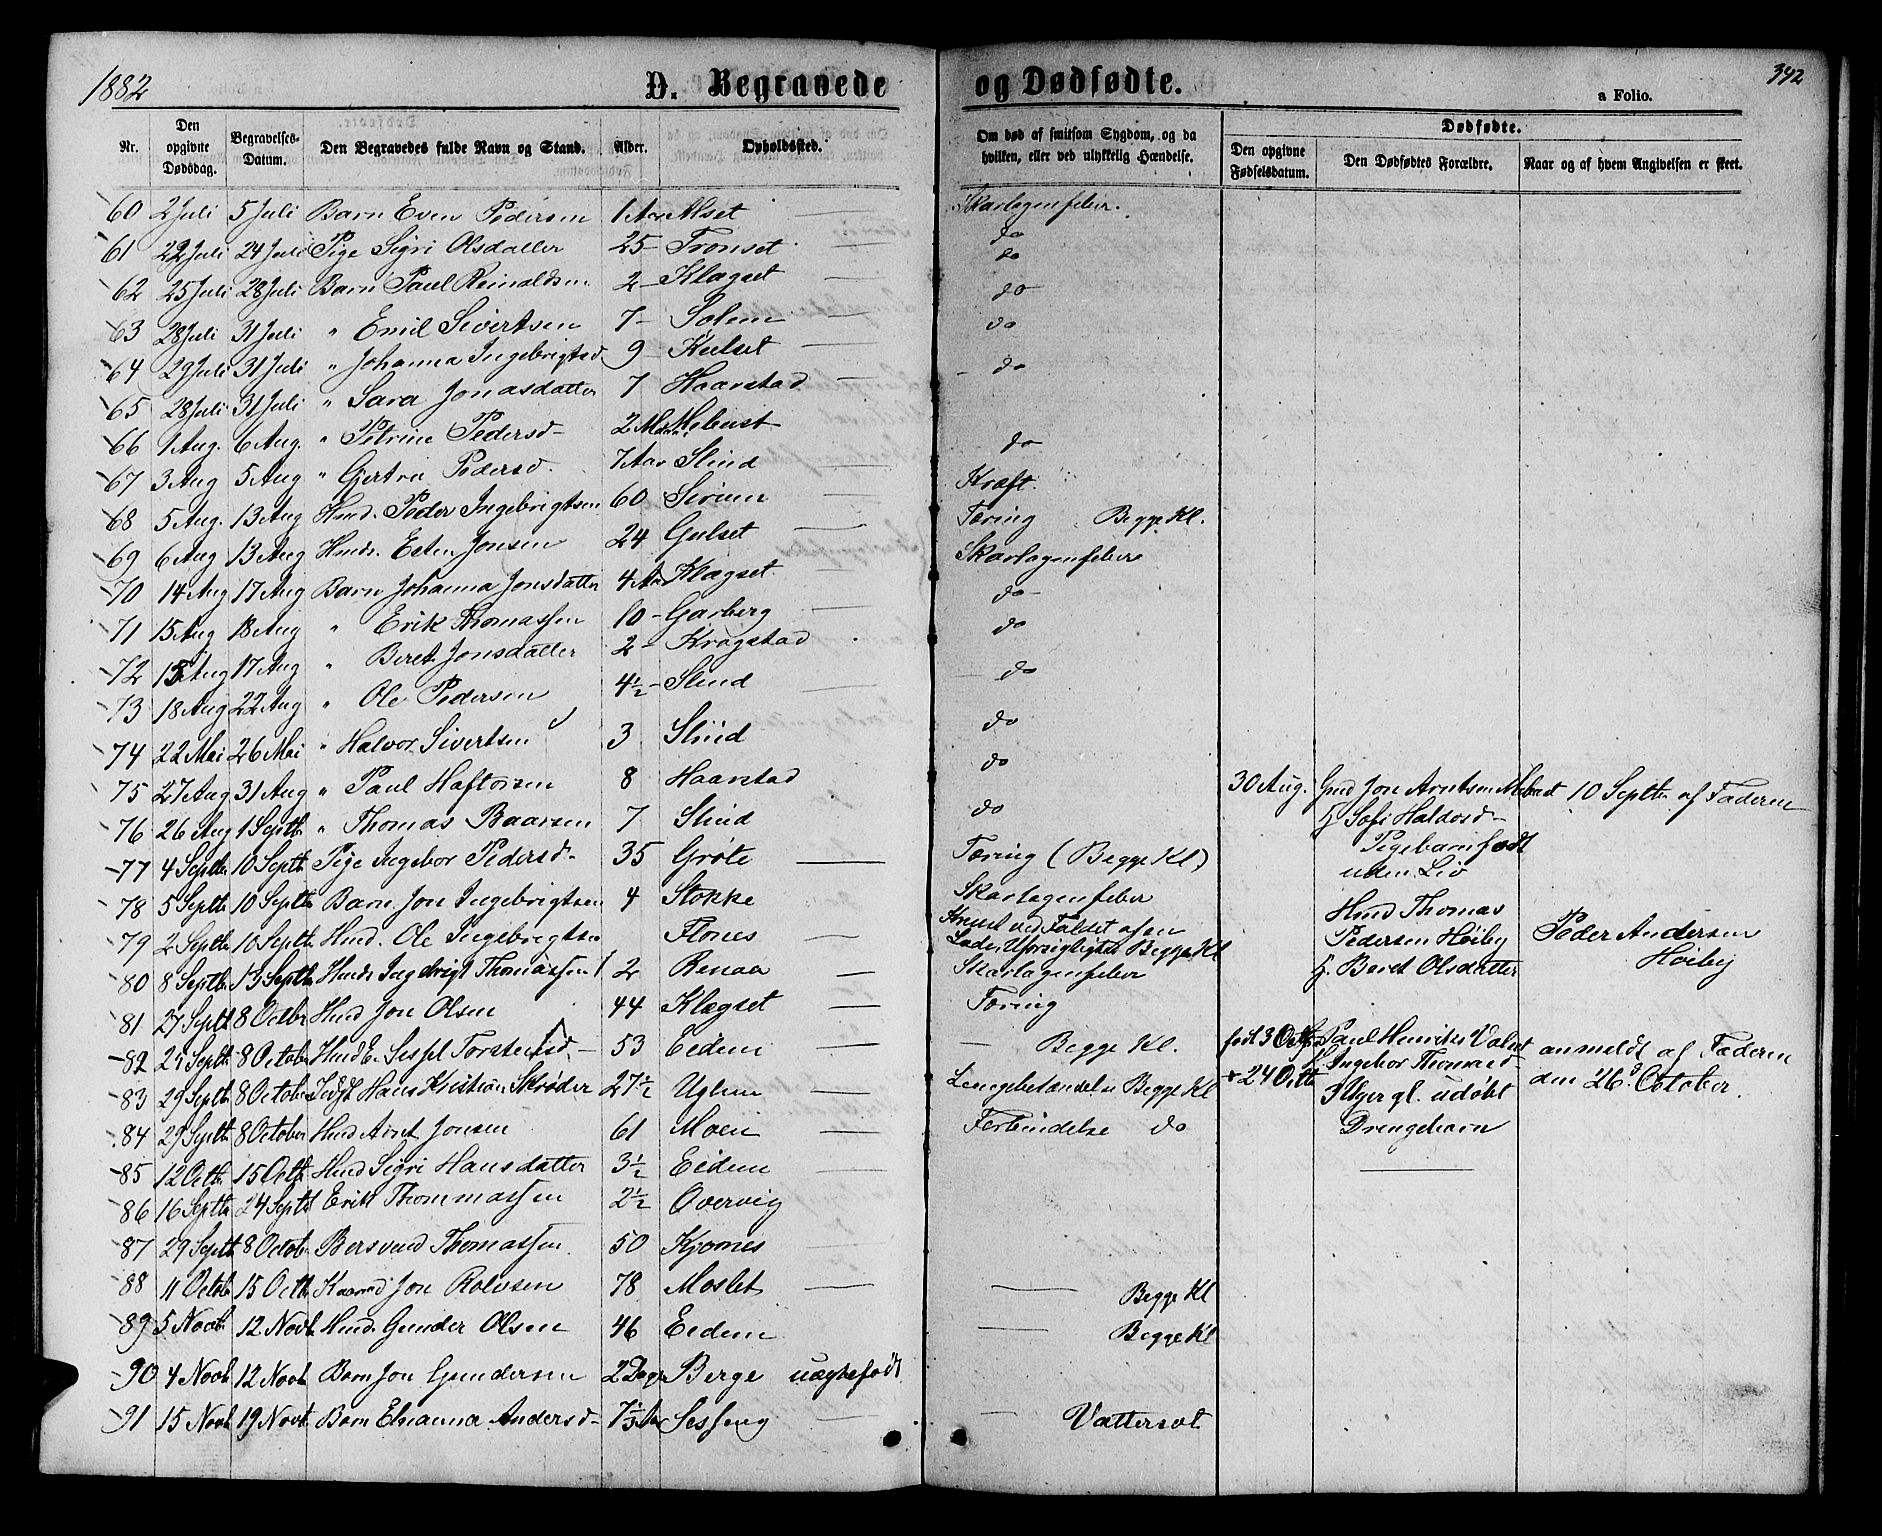 1882
D. Begravede og Dødfødte.
342
a Folio.
Nr.
Den opgivne Dødsdag.
Begravelses-Datum.
Den Begravedes fulde Navn og Stand.
Alder.
Opholdssted.
Om død af smitsom Sygdom, og da hvilken, eller ved ulykkelig Hændelse.
Dødfødte.
Den opgivne Fødselsdatum.
Den Dødfødtes Forældre.
Naar og af hvem Angivelsen er skeet.
60 2 Juli 5 Juli Barn Even Pedersen 1 Aar Alset Skarlagensfeber.
61 22 Juli 24 Juli Pige Sigri Olsdatter 25 - Tronset do
62 25 Juli 28 Juli Barn Paul Reinaldsen 2 - Klægset do
63 28 Juli 31 Juli " Emil Sivertsen 7 - Solem do
64 29 Juli 31 Juli " Johanna Ingebrigtsd 9 Kulset do
65 28 Juli 31 Juli " Sara Jonasdatter 7 Haarstad do
66 1 Aug. 6 Aug. " Petrine Pedersd - 2 Mebust
67 3 Aug 5 Aug " Gjertru Pedersd. 7 Aar Slind do
68 5 Aug. 13 Aug Hmd. Peder Ingebrigtsen 60 Kræft.
69 6 Aug 13 Aug Hmds. Esten Jonsen 24 Gulset Tæring Begge Kl.
70 14 Aug 17 Aug Barn Johanna Jonsdatter 4 Aar Klægset Skarlagensfeber
71 15 Aug 18 Aug " Erik Thomassen 10 - Garberg do
72 15 Aug 17 Aug " Beret Jonsdatter 2 - Kragstad do
73 18 Aug 22 Aug " Ole Pedersen 4½ - Slind do
74 22 Mai 26 Mai " Halvor Sivertsen 3 Slind do
75 27 Aug 31 Aug " Paul Haftorsen 8 Haarstad do
76 26 Aug 1 Septb " Thomas Baarsen 7 Slind do
77 4 Septbr 10 Septb Pige Ingebor Pedersd - 35 Grøte Tæring (Begge Kl)
78 5 Septb 10 Septb Barn Jon Ingebrigtsen 4 Stokke Skarlagensfeber
79 2 Septbr 10 Septbr Hmd. Ole Ingebrigtsen Flønes Knust ved Faldet af en Lade, Uforsigtighed Begge Kl
80 8 Septbr 13 Septb Hmds Ingebrigt Thomassen 2 Renaa Skarlagensfeber
81 27 Septb 8 Octbr Hmd Jon Olsen 44 Klægset Tæring
82 25 Septb 8 Octobr Hmd E. Sessel Torstensd - 53 Eidem Begge Kl.
83 29 Septb 8 October Indst Hans Kristian Skrøder 27½ Uglem Lungebetændelse Begge Kl
84 29 Septb 8 October Hmd Arnt Jonsen 61 Moen Forbindelse do
85 12 Octb 15 Octb Hmd Sigri Hansdatter 3½ Eidem
86 16 Septb 24 Septb Erik Thommassen 2½ Overvig
87 29 Septb 8 Octob Bersvend Thomassen. 50 Kjøsnes
88 11 Octob 15 Octb Jon Rolvsen 78 Moslet Begge Kl
89 5 Novb 12 Novb. Hmd. Gunder Olsen 46 Eidem Begge Kl
90 4 Novb 12 Novb Barn Jon Gundersen 2 Dage Berge uægtefødt
91 15 Novb 19 Novb. Barn Elnanna Andersd - Sesseng Vattersot
30 Aug. Gmd Jon Arntsen Mebust 10 Septbr af Faderen
H. Sofi Haldosd -
Pigebarn født
uden Liv
Hmd Thomas
Pedersen Høiby Peder Andersen
H. Beret Olsdatter Høiby
født 3 Octbr Paul Henriks Valset anmeldt af Faderen
24 Octb Ingebor Thomasd - den 26 October.
3 Uger gl. udøbt
Drengebarn